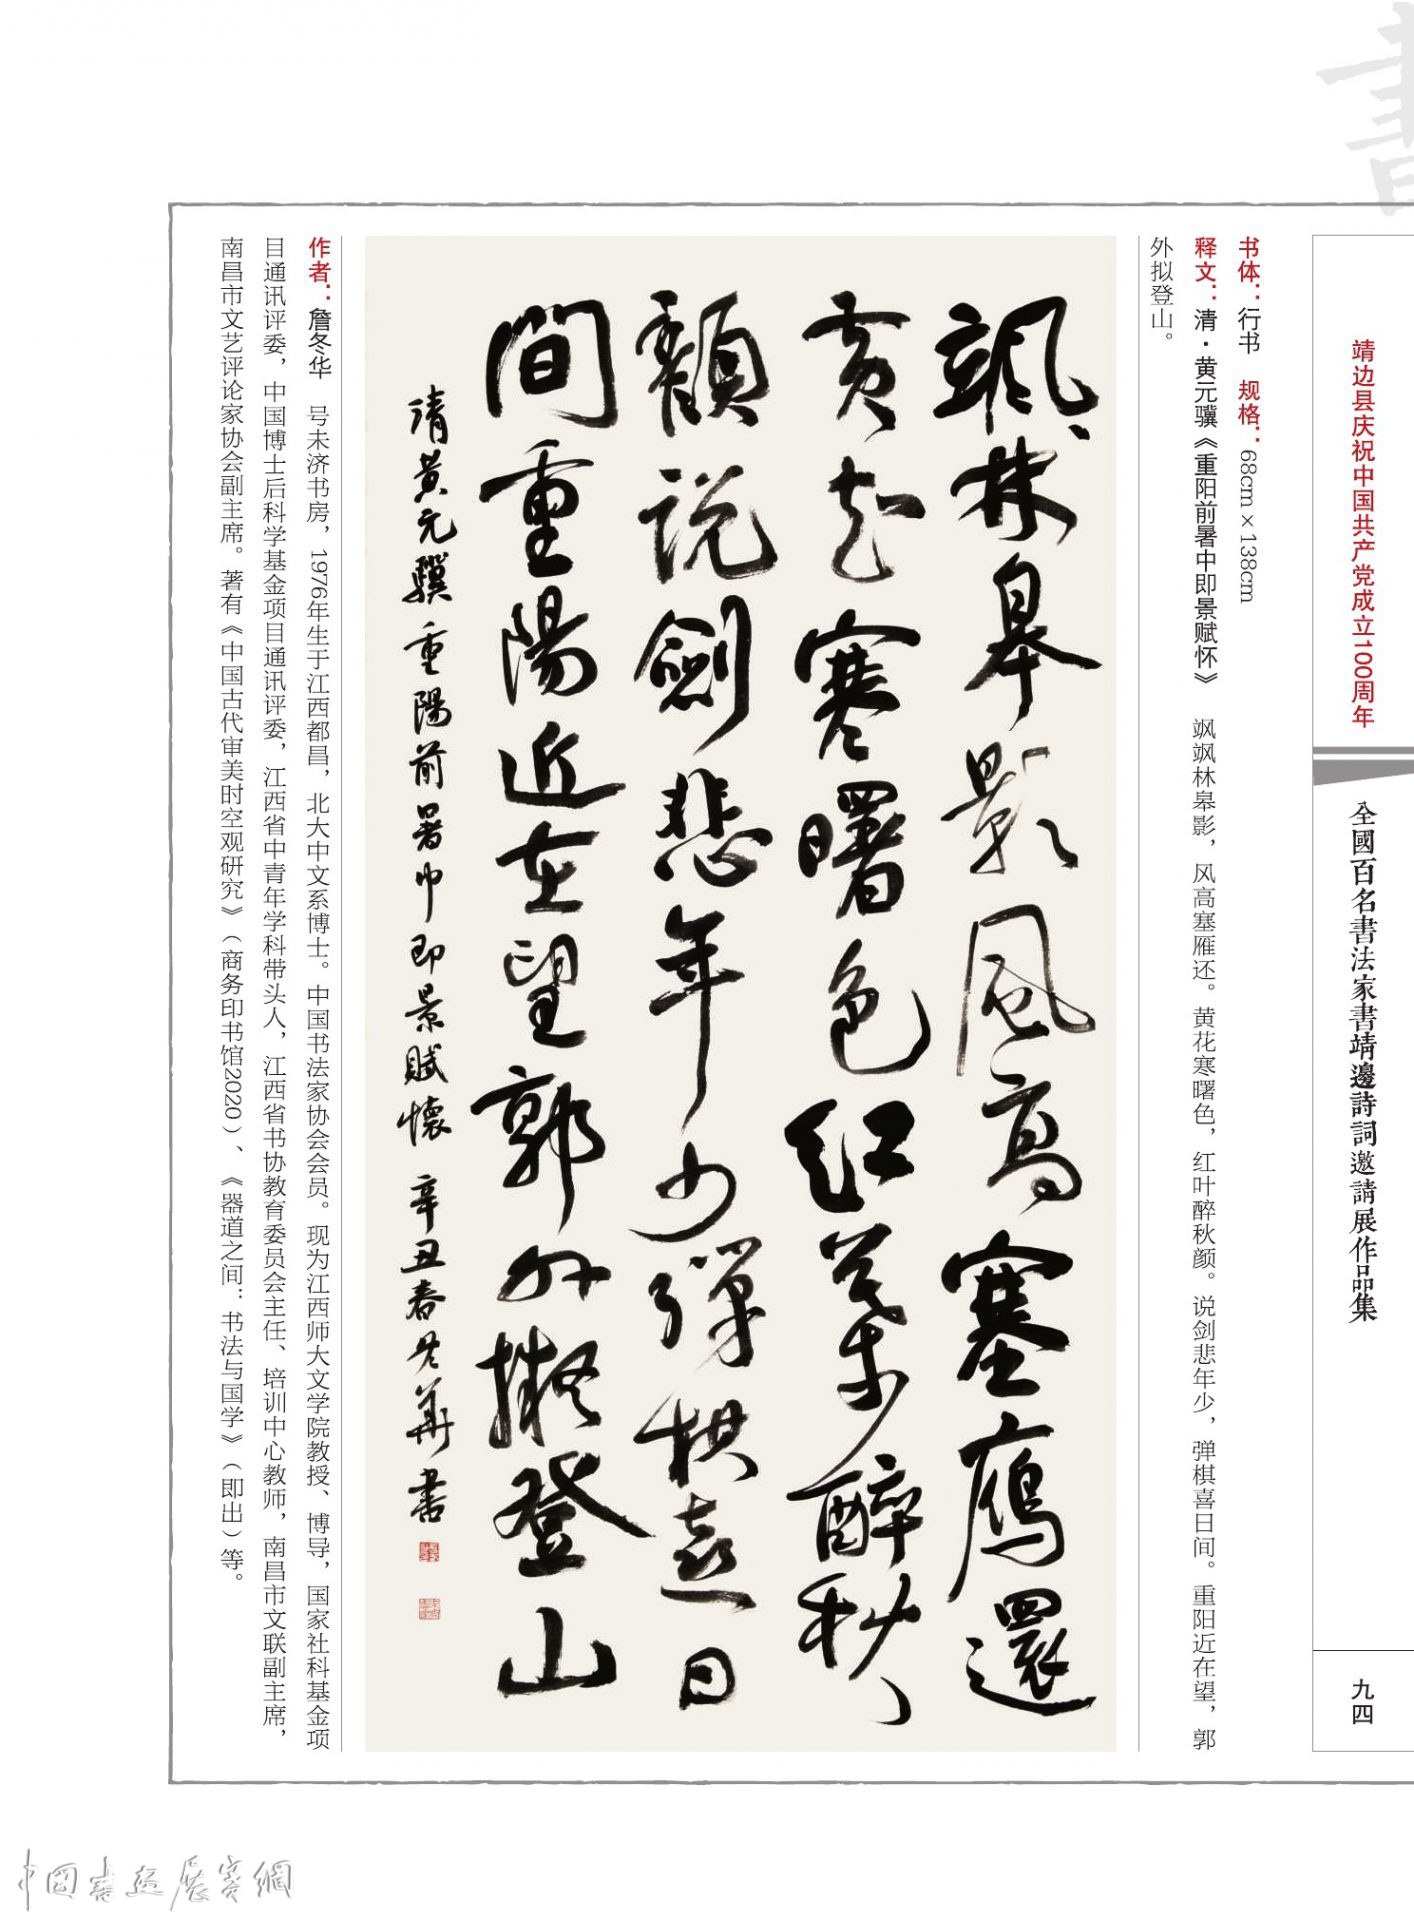 書
靖边县庆祝中国共产党成立100周年
全國百名書法家書靖邊詩詞邀請展作品集
九四
书体：行书　规格：68cm×138cm
释文：清·黄元骥《重阳前暑中即景赋怀》　飒飒林皋影，风高塞雁还。黄花寒曙色，红叶醉秋颜。说剑悲年少，弹棋喜日间。重阳近在望，郭
外拟登山。
颯〻林皋影風高塞鴈還
黄花寒曙色红葉醉秋
顏说劍悲年少弹棋喜日
間重陽近在望郭外擬登山
清黄元驥重陽前暑中即景賦懷 辛丑春冬華書
作者：詹冬华　号未济书房，1976年生于江西都昌，北大中文系博士。中国书法家协会会员。现为江西师大文学院教授、博导，国家社科基金项
目通讯评委，中国博士后科学基金项目通讯评委，江西省中青年学科带头人，江西省书协教育委员会主任、培训中心教师，南昌市文联副主席，
南昌市文艺评论家协会副主席。著有《中国古代审美时空观研究》（商务印书馆2020）、《器道之间：书法与国学》（即出）等。
中國書畫展賽網